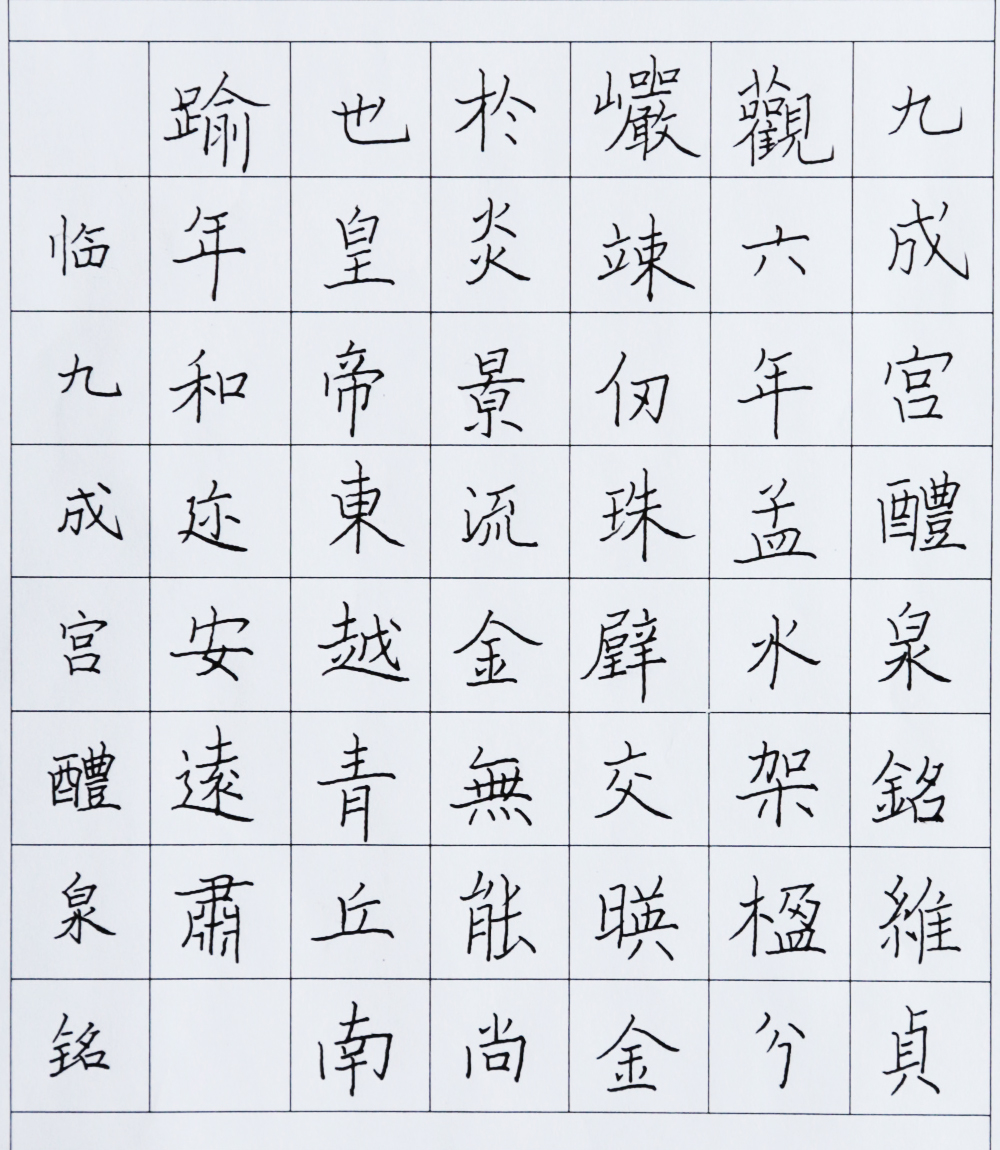 九成宫醴泉銘維貞
觀六年孟水架楹兮
巖竦仞珠壁交暎金
於炎景流金無能尚
也皇帝東越青丘南
踰年和迩安遠肅
临九成宫醴泉铭